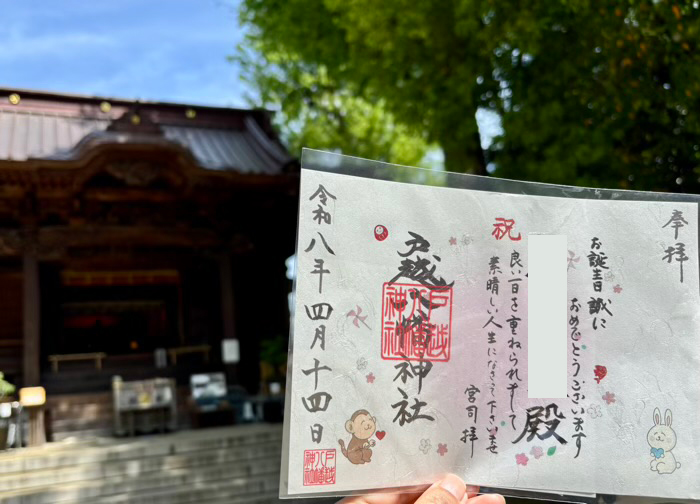 奉拝
お誕生日 誠に
おめでとうございます
殿
祝
良い一日を重ねられまして
素晴しい人生になさって下さいませ
宮司 拝
戸越八幡神社
戸越八幡神社
令和八年四月十四日
戸越八幡神社